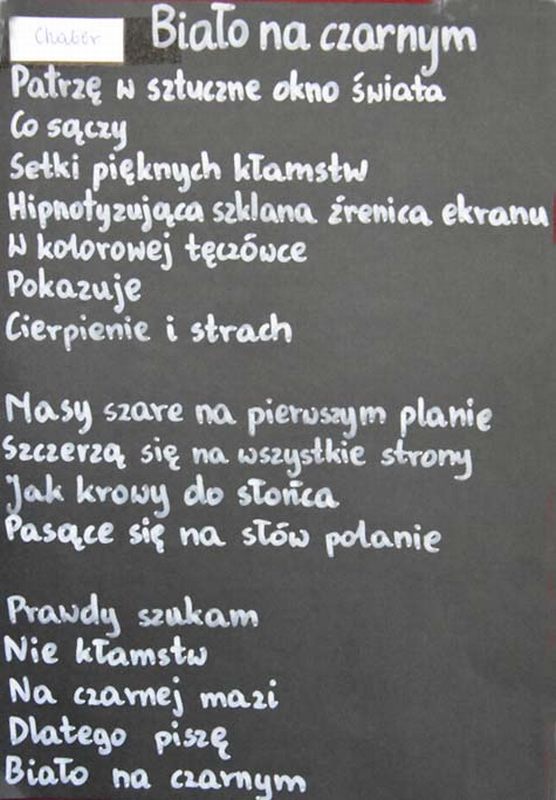 Chaber
Biało na czarnym
Patrzę w sztuczne okno świata
Co sączy
Setki pięknych kłamstw
Hipnotyzująca szklana źrenica ekranu
W kolorowej tęczówce
Pokazuje
Cierpienie i strach
Masy szare na pierwszym planie
Szczerzą się na wszystkie strony
Jak krowy do słońca
Pasące się na słów polanie
Prawdy szukam
Nie kłamstw
Na czarnej mazi
Dlatego piszę
Biało na czarnym